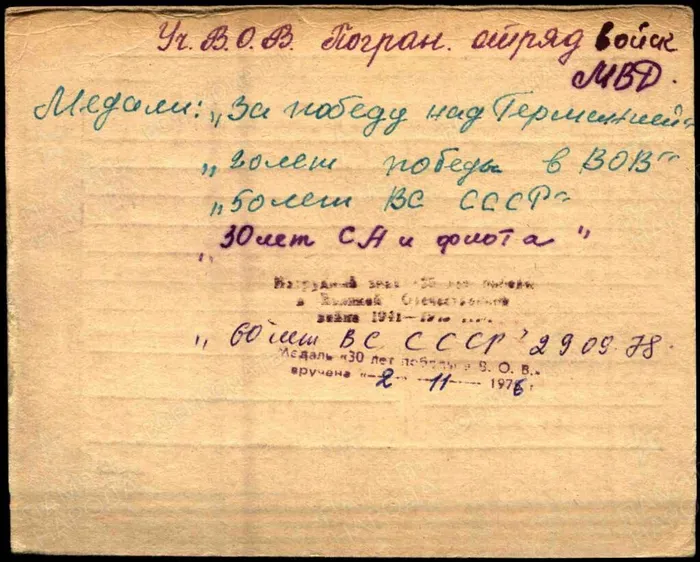 Уч. В.О.В. Погран. отряд войск
МВД.
Медали: „За победу над Германией“
„20 лет победы в ВОВ“
„50 лет ВС СССР“
„30 лет СА и флота"
Нагрудный знак «25 лет победы
в Великой Отечественной
войне 1941—1945 гг.»
„60 лет ВС СССР" 29.09.78.
Медаль «30 лет победы в В. О. В.»
вручена «—2— —11—— 1976 г